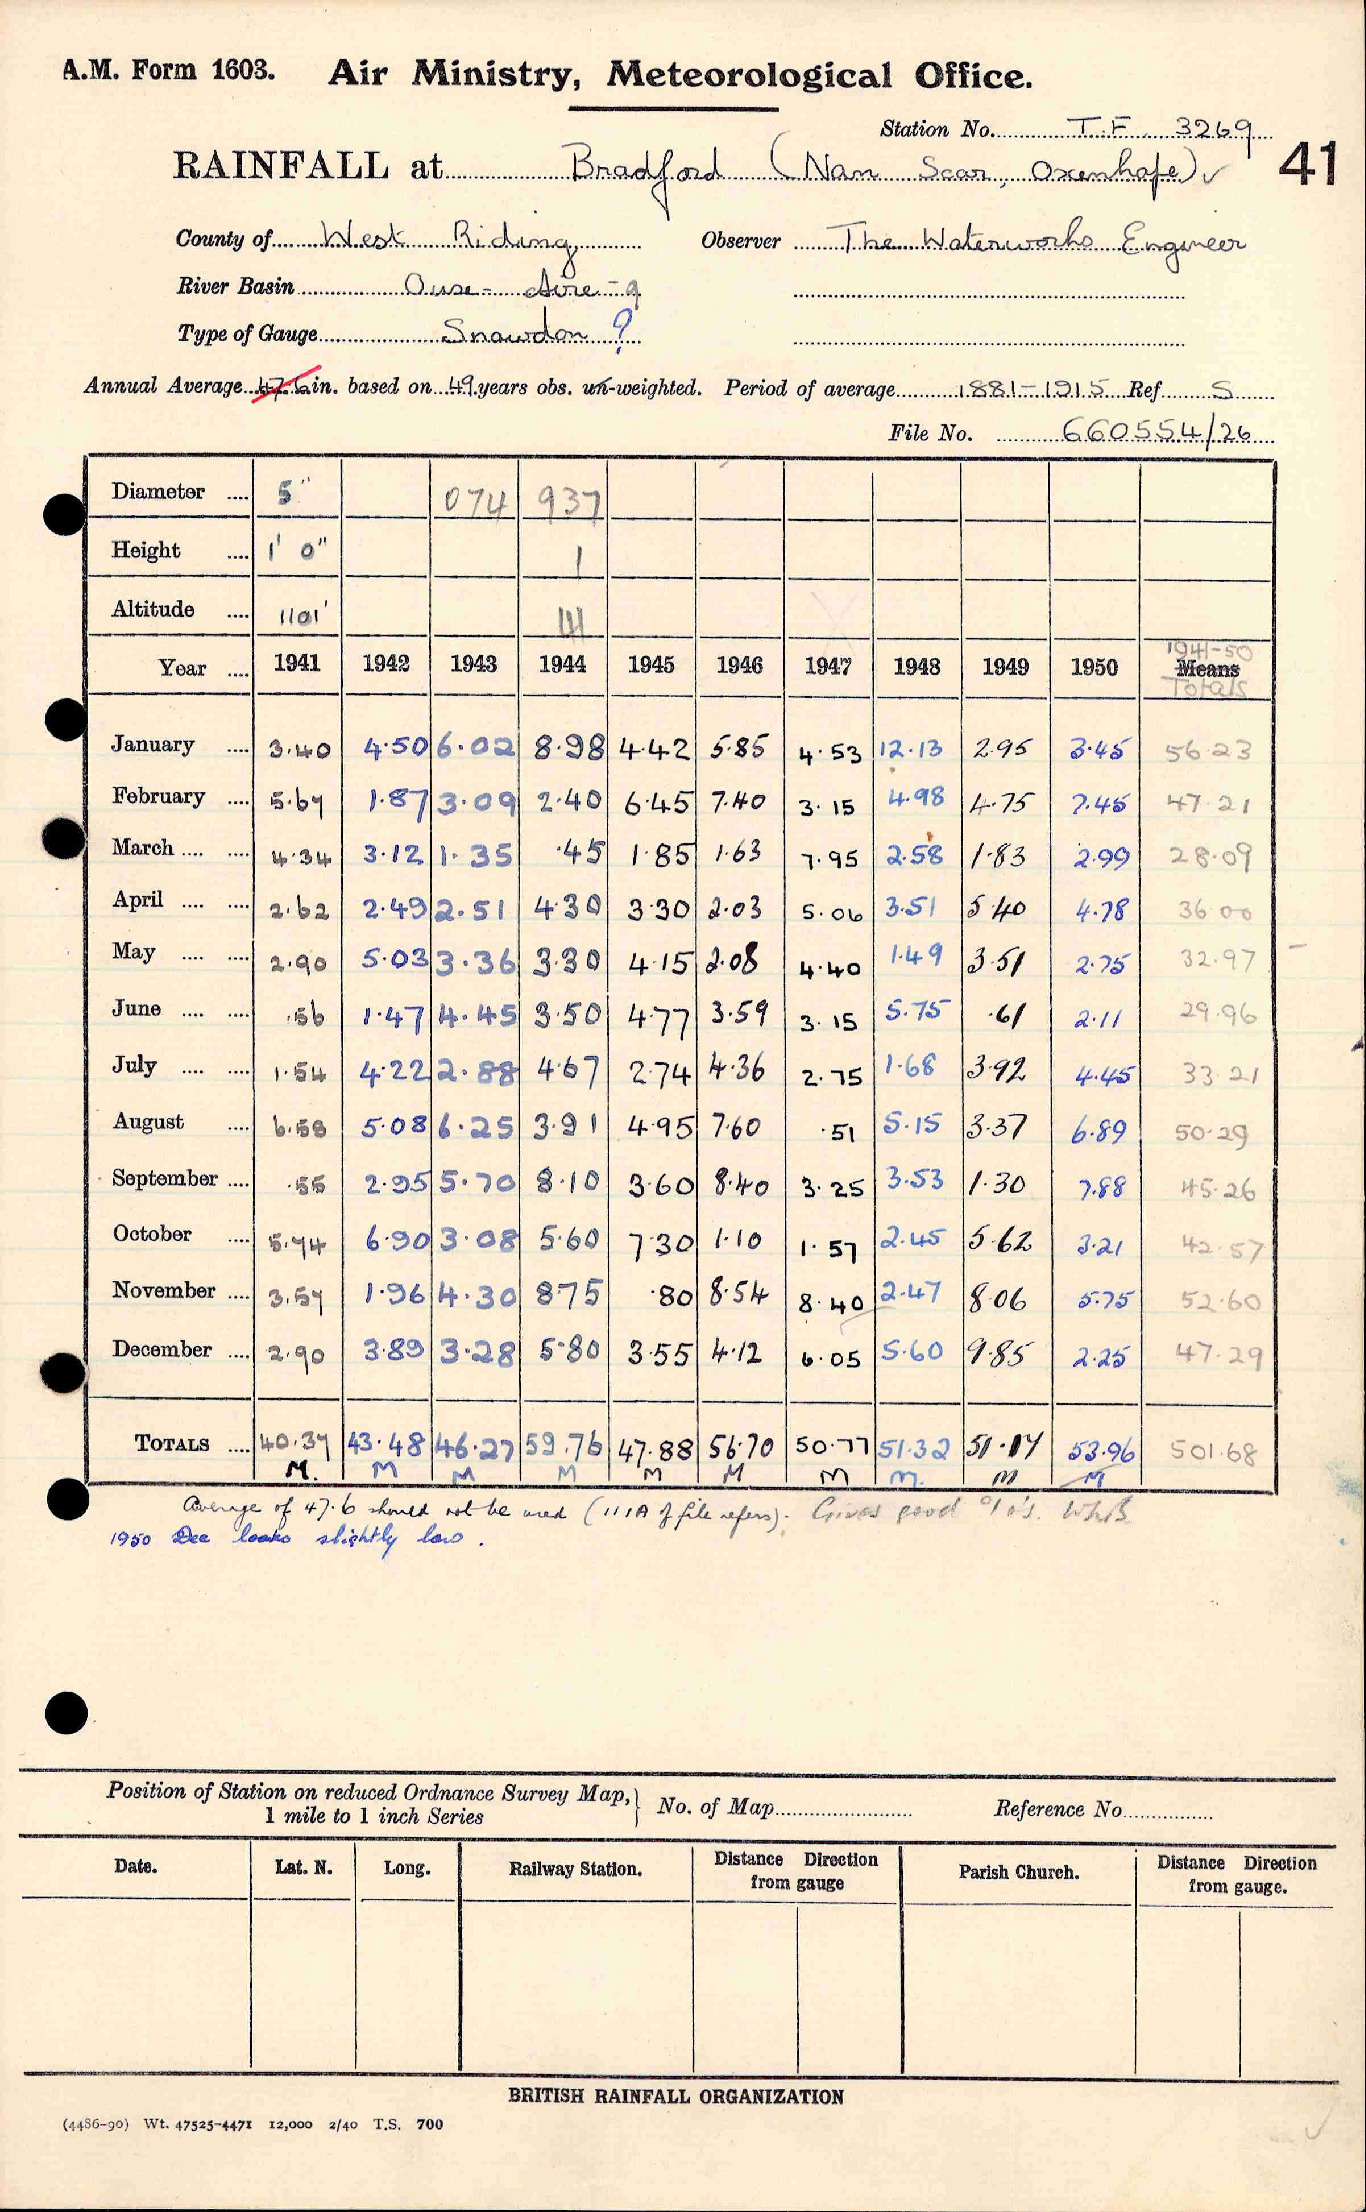 A.M. Form 1603. Air Ministry, Meteorological Office.
Station No. T.F. 3269
RAINFALL at Bradford (Nan Scar, Oxenhope) ✓ 41
County of West Riding Observer The Waterworks Engineer
River Basin Ouse - Aire - 9
Type of Gauge Snowdon ?
Annual Average 47.6 in. based on 49 years obs. un-weighted. Period of average 1881-1915 Ref S
File No. 660554/26
Diameter .... 5" 074 937
Height .... 1' 0" 1
Altitude .... 1101'
Year .... 1941 1942 1943 1944 1945 1946 1947 1948 1949 1950 1941-50 Means Totals
January .... 3.40 4.50 6.02 8.98 4.42 5.85 4.53 12.13 2.95 3.45 56.23
February .... 5.67 1.87 3.09 2.40 6.45 7.40 3.15 4.98 4.75 7.45 47.21
March .... .... 4.34 3.12 1.35 .45 1.85 1.63 7.95 2.58 1.83 2.99 28.09
April .... .... 2.62 2.49 2.51 4.30 3.30 2.03 5.06 3.51 5.40 4.78 36.00
May .... .... 2.90 5.03 3.36 3.30 4.15 2.08 4.40 1.49 3.51 2.75 32.97
June .... .... .56 1.47 4.45 3.50 4.77 3.59 3.15 5.75 .61 2.11 29.96
July .... .... 1.54 4.22 2.88 4.67 2.74 4.36 2.75 1.68 3.92 4.45 33.21
August .... 6.58 5.08 6.25 3.91 4.95 7.60 .51 5.15 3.37 6.89 50.29
September .... .55 2.95 5.70 8.10 3.60 8.40 3.25 3.53 1.30 7.88 45.26
October .... 5.74 6.90 3.08 5.60 7.30 1.10 1.57 2.45 5.62 3.21 42.57
November .... 3.57 1.96 4.30 8.75 .80 8.54 8.40 2.47 8.06 5.75 52.60
December .... 2.90 3.89 3.28 5.80 3.55 4.12 6.05 5.60 9.85 2.25 47.29
TOTALS .... 40.37 43.48 46.27 59.76 47.88 56.70 50.77 51.32 51.17 53.96 501.68
M. M M M M M M M. M M
Average of 47.6 should not be used (111A of file refers). Gives good %'s.
1950 Dec looks slightly low.
Position of Station on reduced Ordnance Survey Map, 1 mile to 1 inch Series } No. of Map Reference No.
Date. Lat. N. Long. Railway Station. Distance Direction from gauge Parish Church. Distance Direction from gauge.
BRITISH RAINFALL ORGANIZATION
(4486-90) Wt. 47525-4471 12,000 2/40 T.S. 700